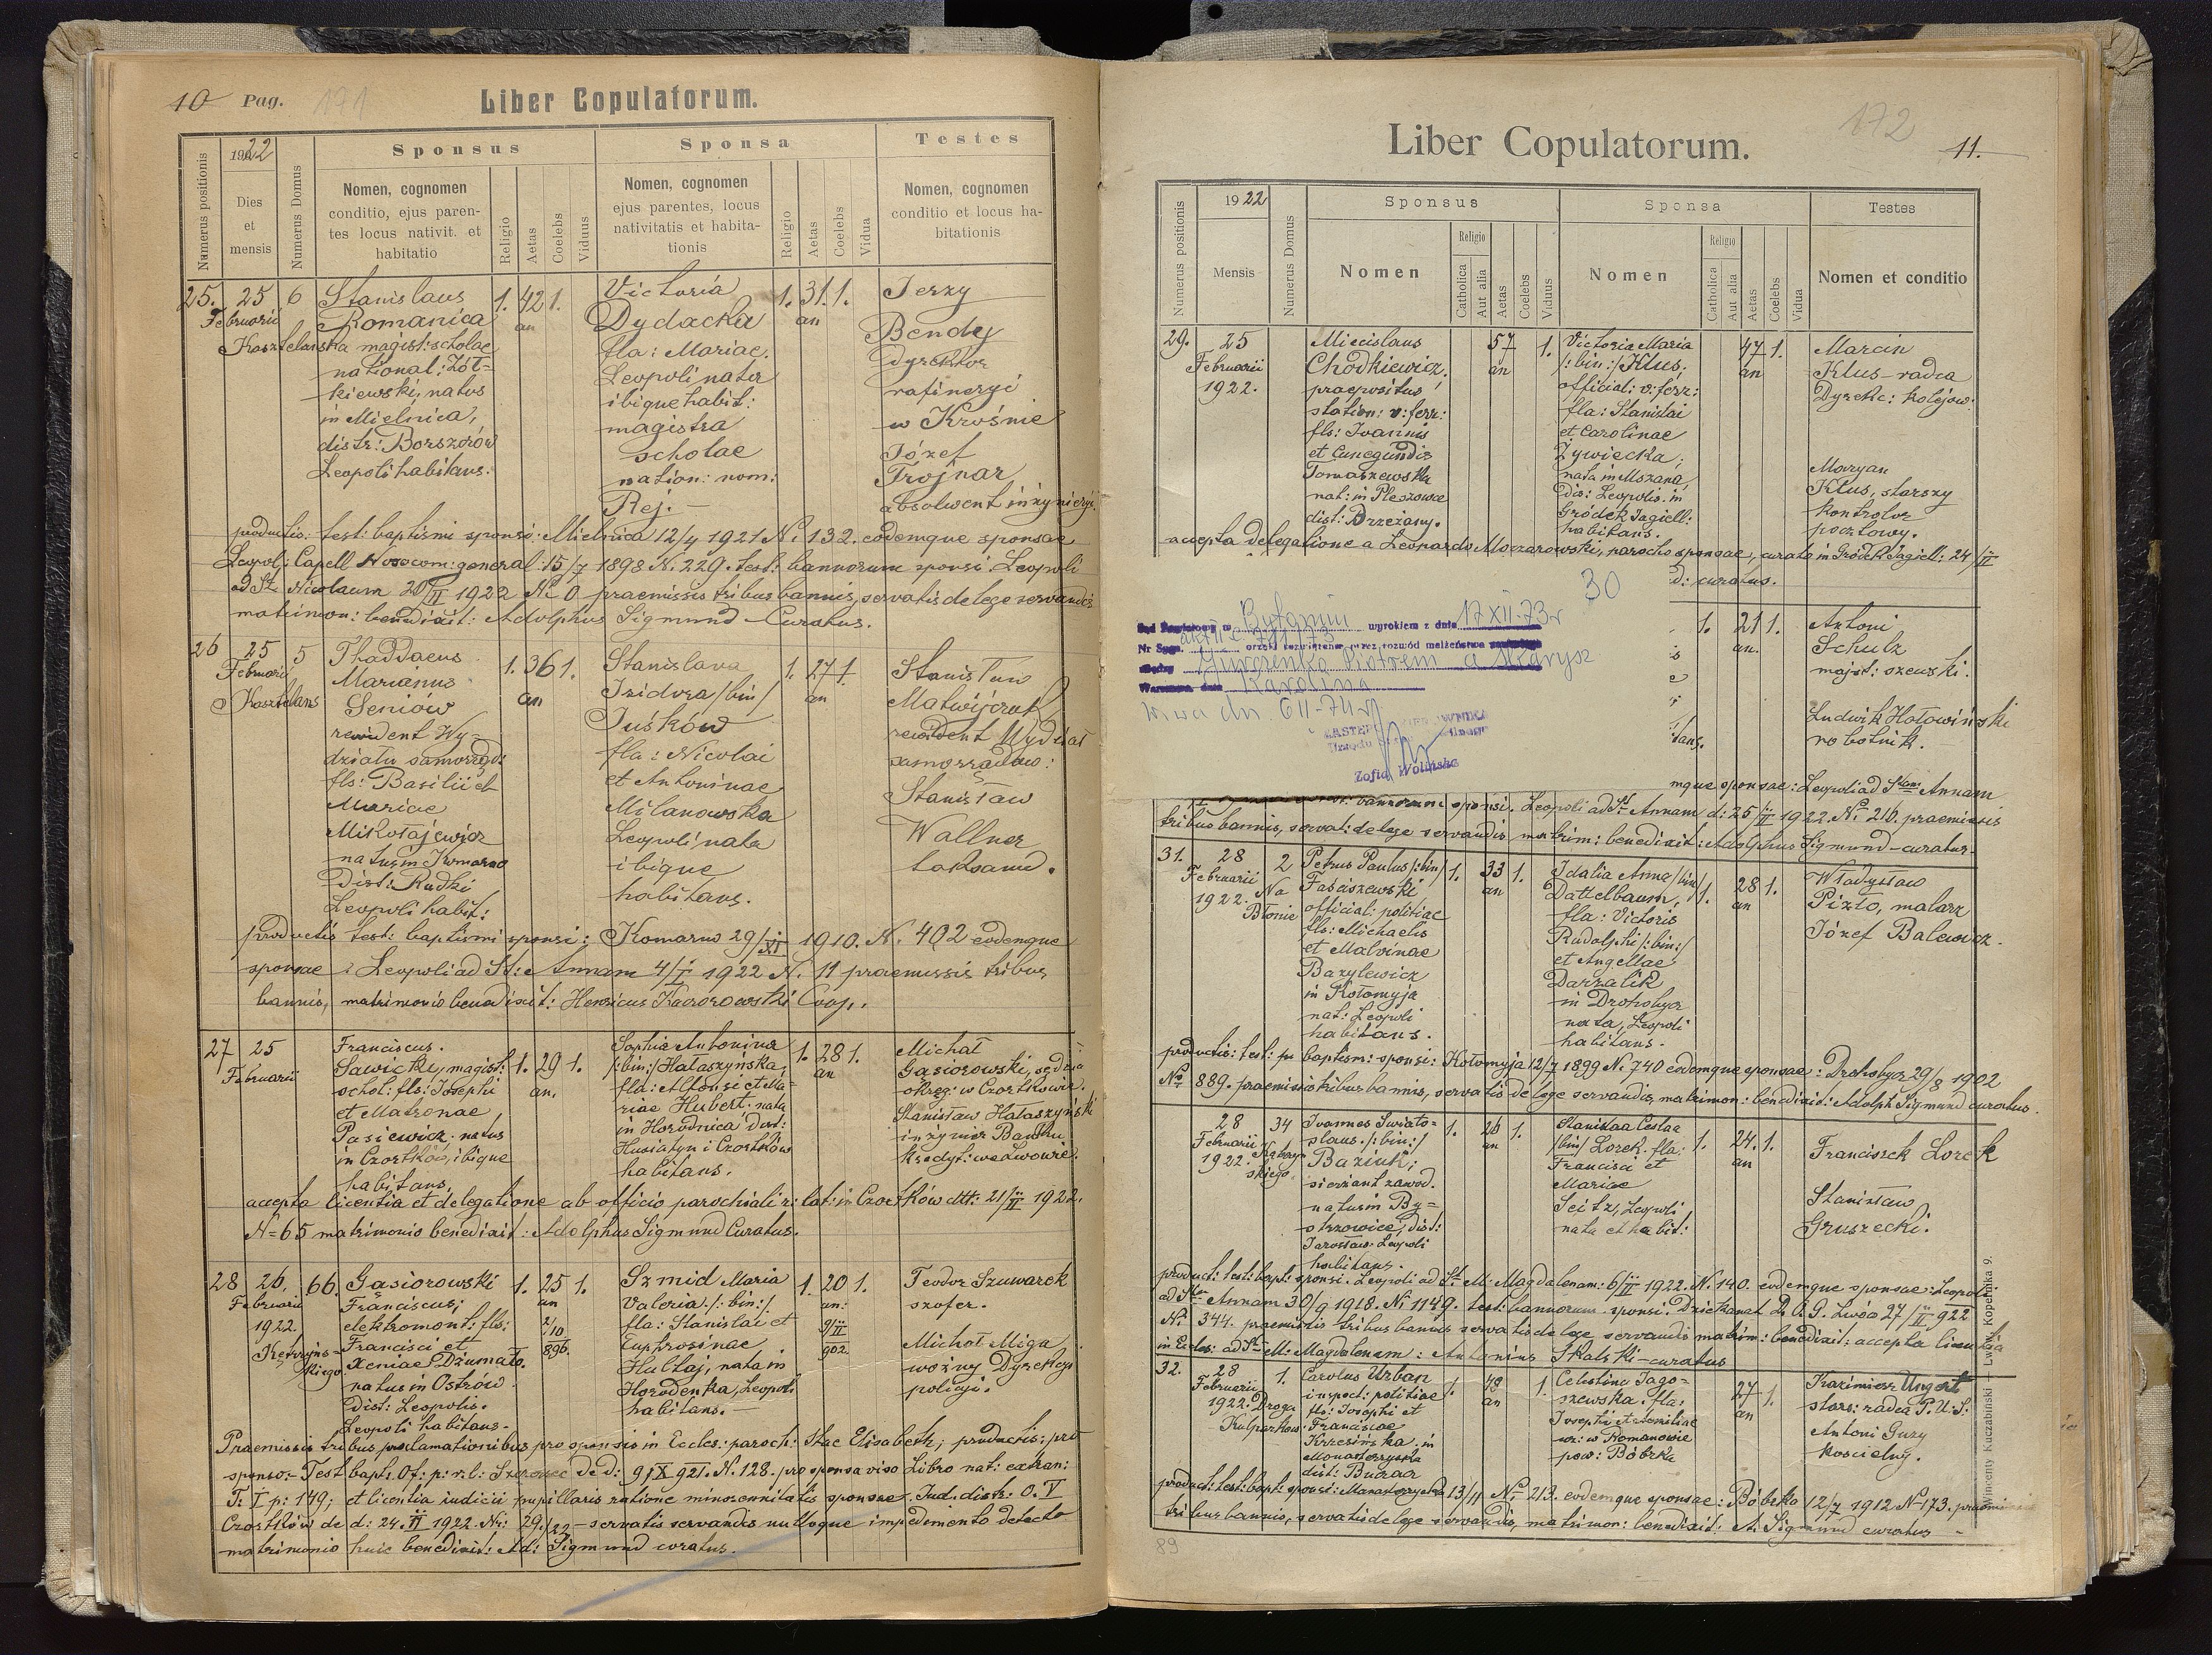 10 Pag. 171
Liber Copulatorum.
Numerus positionis
1922
Dies et mensis
Numerus Domus
Sponsus
Nomen, cognomen
conditio, ejus paren-
tes locus nativit. et
habitatio
Religio
Aetas
Coelebs
Viduus
Sponsa
Nomen, cognomen
ejus parentes, locus
nativitatis et habita-
tionis
Religio
Aetas
Coelebs
Vidua
Testes
Nomen, cognomen
conditio et locus ha-
bitationis
25. 25 Februarii 6
Stanislaus
Romanica
magist: scholae
national: Żół-
kiewski, natus
in Mielnica,
distr: Borszczów
Leopoli habitans.
1. 42 an 1.
Victoria
Dydacka
fla: Mariae.
Leopoli nata
ibique habit:
magistra
scholae
nation: nom:
Rej. —
1. 31. an 1.
Jerzy
Bendy
dyrektor
rafineryi
w Krośnie
Józef
Trojnar
absolwent inżynieryi
productis: test: baptismi sponsi: Mielnica 12/4 1921 N: 132. eodemque sponsae
Leopol: Capell Nosocom: general: 15/7 1898 N. 229. test: bannorum sponsi Leopoli
ad St. Nicolaum 20/II 1922 N: 0 praemissis tribus bannis, servatis de lege servandis
matrimon: benedixit: Adolphus Sigmund Curatus.
26 25 Februarii 5
Thaddaeus
Marianus
Seniów
rewident Wy-
działu samorząd:
fls: Basilii et
Mariae
Mikołajewicz
natus in Komarno
Dist: Rudki
Leopoli habit:
1. 36 an 1.
Stanislava
Isidora /bin/
Juśków
fla: Nicolai
et Antoninae
Milanowska
Leopoli nata
ibique
habitans.
1. 27 an 1.
Stanisław
Matwijczuk
rewident Wydział
samorządow:
Stanisław
Wallner
taksand.
productis test: baptismi sponsi: Komarno 29/XI 1910. N. 402 eodemque
sponsae: Leopoli ad St: Annam 4/I 1922 N. 11 praemissis tribus
bannis, matrimonio benedixit: Henricus Kaczorowski Coop.
27 25 Februarii
Franciscus.
Sawicki, magist:
schol: fls: Josephi
et Matronae
Pasiewicz. natus
in Czortków, ibique
habitans.
1. 29 an. 1.
Sophia Antonina
/:bin:/ Hałaszyńska,
fla: Alfonsi et Ma-
riae Hubert. nata
in Horodnica Dist:
Husiatyn i Czortków
habitans.
1. 28 an 1.
Michał
Gąsiorowski, sędzia
okręg: w Czortkowie.
Stanisław Hałaszyński
inżynier Banku
kredyt: we Lwowie.
accepta licentia et delegatione ab officio parochiali r: lat: in Czortków dtt: 21/II 1922.
N= 65 matrimonio benedixit: Adolphus Sigmund Curatus.
28 26. Februarii 1922. 66.
Gąsiorowski
Franciscus;
elektromont: fls:
Francisci et
Xeniae Dżumato.
natus in Ostrów
Dist: Leopolis.
Leopoli habitans.
1. 25 an 2/10 896. 1.
Szmid Maria
Valeria /:bin:/
fla: Stanislai et
Euphrosinae
Hultaj, nata in
Horodenka, Leopoli
habitans. —
1. 20 an: 9/II 902 1.
Teodor Szuwarek
szofer.
Michał Miga
woźny Dyrekcyi
policyi.
Praemissis tribus proclamationibus pro sponsis in Eccles: paroch: Stae Elisabeth; productis: pro
sponso:- Test bapt: Of: p: r: l: Szczerzec de d: 9/X 921. N. 128. pro sponsa viso Libro nat: extran:
T: I p: 149; et licentia iudicii pupillaris ratione minorennitatis sponsae. Jud. distr: O. V
Czortków de d: 24. II 1922. Nr: 29./22 - servatis servandis nulloque impedimento detecto
matrimonio huic benedixit: Ad: Sigmund curatus.
172
Liber Copulatorum.
11.
Numerus positionis
1922
Mensis
Numerus Domus
Sponsus
Nomen
Religio
Catholica
Aut alia
Aetas
Coelebs
Viduus
Sponsa
Nomen
Religio
Catholica
Aut alia
Aetas
Coelebs
Vidua
Testes
Nomen et conditio
29. 25 Februarii 1922.
Miecislaus
Chodkiewicz.
praepositus
station: v: ferr:
fls: Joannis
et Cunegundis
Tomaszewska
nat: in Pleszowce
dist: Brzeżany.
57 an 1.
Victoria Maria
/:bin:/ Klus.
official: v: ferr:
fla: Stanislai
et Carolinae
Żywiecka;
nata in Mszana,
dis: Leopolis. in
Gródek Jagiell:
habitans.
47 an 1.
Marcin
Klus - radca
Dyrekc: kolejow:
Maryan
Klus, starszy
kontrolor
pocztowy.
accepta delegatione a Leonardo Moczarowski, parocho sponsae, curato in Gródek Jagiell: 24/II
d: curatus.
30
Sąd Powiatowy w Bytomiu wyrokiem z dnia 17 XII-73r
Nr Sygn. orzekł rozwiązanie przez rozwód małżeństwa
między Juwczenko Piotrem a Marysz
Warszawa, dnia Karolina
W-wa dn. 6 II-74 r
ZASTĘPCA KIEROWNIKA
Zofia Wolińska
1. 21 an. 1.
Antoni
Schulz
majst: szewski.
Ludwik Hołowiński
robotnik.
mque sponsae: Leopoli ad Stam Annam
bannorum sponsi. Leopoli ad St Annam d: 25/II 1922. N: 216. praemissis
tribus bannis, servatis de lege servandis matrim: benedixit: Adolphus Sigmund - curatus.
31. 28 Februarii 1922. 2 Na Błonie
Petrus Paulus /:bin/
Faściszewski
official: politiae
fls: Michaelis
et Malvinae
Bazylewicz
in Kołomyja
nat: Leopoli
habitans.
1. 33 an 1.
Idalia Anna /bin/
Dattelbaum,
fla: Victoris
Rudolphi /:bin:/
et Angellae
Darzalik
in Drohobycz
nata, Leopoli
habitans.
1. 28 an 1.
Władysław
Pizło, malarz
Józef Balewicz.
productis: test: baptism: sponsi: Kołomyja 12/7 1899 N: 740 eodemque sponsae: Drohobycz 29/8 1902
No 889. praemissis tribus bannis, servatis de lege servandis matrimon: benedixit: Adolph Sigmund curatus.
28 Februarii 1922. 34
Joannes Swiato-
slaus /:bin:/
Baziuk;
sierżant zawod.
natus in By-
strzowice, dist:
Jarosław. Leopoli
habitans.
1. 26 an 1.
Stanislaa Ceslaa
/bin/ Lorek. fla:
Francisci et
Mariae
Seitz, Leopoli
nata et habit:
1. 24. an 1.
Franciszek Lorek
Stanisław
Gruszecki.
product: test: bapt: sponsi. Leopoli ad St. M: Magdalenam: 6/II 1922. N. 140. eodemque sponsae: Leopoli
ad Stam Annam 30/9 1918. N: 1149. test: bannorum sponsi. Dziekanat D. O. G. Lwów 27/II 922
N: 344. praemissis tribus bannis servatis de lege servandis matrim: benedixit: accepta licentia
in Eccles: ad St. M: Magdalenam: Antonius Skalski - curatus
32. 28 Februarii 1922. Droga Kulparkow: 1.
Carolus Urban
inspect: politiae
fls: Josephi et
Franciscae
Krzesińska. in
Monasterzyska
dist: Buczacz
1. 48 an 1.
Celestina Jago-
szewska. fla:
Josephi et Aemiliae
ur: w Romanowie
pow: Bóbrka
27 an 1.
Kazimierz Ungert
stars: radca P. U. S.
Antoni Guzy
kościelny.
product: test: bapt: sponsi: Monasterzyska 13/4 No 213. eodemque sponsae: Bóbrka 12/7 1912 N- 173. praemissis
tribus bannis, servatis de lege servandis, matrimon: benedixit: A. Sigmund curatus -
89
Wincenty Kuczabiński — Lwów, Kopernika 9.